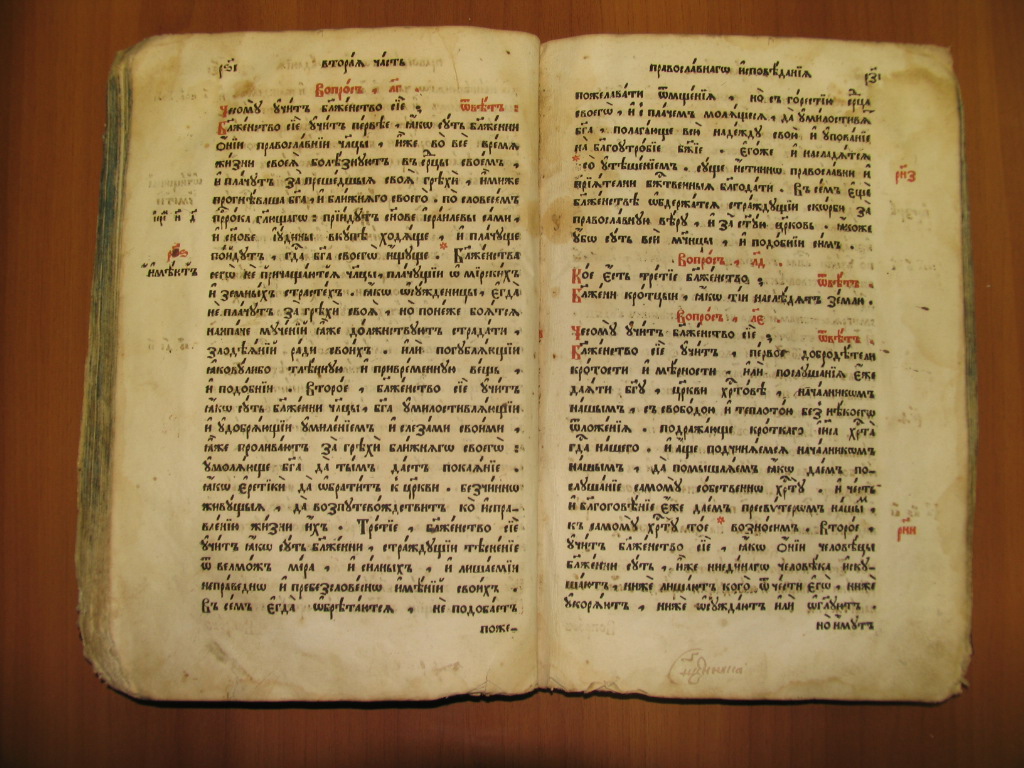 втора́ѧ ча́сть
Вопро́съ, л҃г.
Чесомꙋ̀ ᲂу҆чи́тъ бл҃же́нство сїѐ; Ѿвѣ́тъ:
Бл҃же́нство сїѐ ᲂу҆чи́тъ пе́рвѣе, ꙗ҆́кѡ сꙋ́ть бл҃же́нни
ѻ҆ні́и правосла́внїи чл҃цы, и҆̀же во всѐ вре́мѧ
жи́зни своеѧ̀ болѣ́знꙋютъ въ се́рдцы свое́мъ,
и҆ пла́чꙋтъ за̀ преше́дшыѧ своѧ̀ грѣхѝ, и҆́миже
прогнѣ́ваша бг҃а, и҆ бли́жнѧго своего̀. по словесе́мъ
прⷪ҇ро́ка гл҃ющагѡ: прїи́дꙋтъ сн҃ове і҆сра́илевы са́ми,
и҆ сн҃ове і҆ꙋ́дины вкꙋ́пѣ ходѧ́ще, и҆ пла́чꙋще
по́йдꙋтъ, гдⷭ҇а бг҃а своего̀ и҆́щꙋще. Бл҃же́нства
сегѡ̀ не причаща́ютсѧ чл҃цы, пла́чꙋщїи ѡ҆ мїрски́хъ
и҆ земны́хъ страсте́хъ. ꙗ҆́кѡ ѡ҆сꙋжде́нницы, є҆гда̀
не пла́чꙋтъ за̀ грѣхѝ своѧ̀, но поне́же боѧ́тсѧ
наипа́че мꙋче́нїй ꙗ҆̀же до́лжнствꙋютъ страда́ти,
ѕлодѣѧ́нїй ра́ди свои́хъ. и҆лѝ погꙋблѧ́ющїи
ꙗ҆ковꙋ́либо тлѣ́ннꙋю и҆ привре́меннꙋю ве́щь,
и҆ подо́бнїи. Второ́е, бл҃же́нство сїѐ ᲂу҆чи́тъ
ꙗ҆́кѡ сꙋ́ть бл҃же́нни чл҃цы, бг҃а ᲂу҆милостивлѧ́ющїи
и҆ ᲂу҆добрѧ́ющїи ᲂу҆миле́нїемъ и҆ слеза́ми свои́ми,
ꙗ҆̀же пролива́ютъ за̀ грѣхѝ бли́жнѧгѡ своегѡ̀:
ᲂу҆молѧ́юще бг҃а да̀ ты́мъ да́стъ покаѧ́нїе.
ꙗ҆́кѡ є҆ретікѝ да̀ ѡ҆братѧ́тъ к̾ цр҃кви. безчи́ннѡ
живꙋ́щыѧ, да̀ возпꙋтевожде́ствитъ ко и҆спра-
вле́нїю жи́зни и҆́хъ. Тре́тїе, бл҃же́нство сїѐ
ᲂу҆чи́тъ ꙗ҆́кѡ сꙋ́ть бл҃же́нни, стра́ждꙋщїи тѣсне́нїе
ѿ велмо́жъ мі́ра, и҆ си́лныхъ, и҆ лиша́емїи
непра́веднѡ и҆ пребезсло́веснѡ и҆мѣ́нїй свои́хъ.
Въ се́мъ є҆гда̀ ѡ҆брѣта́ютсѧ, не подоба́етъ
поже-
і҆ме́нꙗтъ
правосла́внагѡ и҆сповѣ́данїѧ
пожелава́ти ѿмще́нїѧ, но̀ съ го́рестїю се́рдца
своегѡ̀, и҆ с̾ пла́чемъ молѧ́щесѧ, да̀ ᲂу҆ми́лостивѧтъ
бг҃а, полага́юще всю̀ наде́ждꙋ свою̀ и҆ ᲂу҆пова́нїе
на бл҃гоꙋтро́бїе бж҃їе. Є҆го́же и҆ насладѧ́тсѧ
со̀ ᲂу҆тѣше́нїемъ. сꙋ́ще и҆́стиннѡ правосла́вни и҆
прїѧ́телни бж҃е́ственныѧ благода́ти. Въ се́мъ є҆щѐ
бл҃же́нствѣ ѡ҆держа́тсѧ стра́ждꙋщїи ско́рби за̀
правосла́внꙋю вѣ́рꙋ, и҆ за̀ ст҃ꙋ́ю цр҃ковь. ꙗ҆́коже
ᲂу҆́бѡ сꙋ́ть всѝ мч҃нцы, и҆ подо́бнїи си̑мъ.
Вопро́съ, л҃д.
Ко́е є҆́сть тре́тїе бл҃же́нство; Ѿвѣ́тъ.
Бл҃же́ни кро́тцыи, ꙗ҆́кѡ ті́и наслѣ́дѧтъ зе́млю.
Вопро́съ, л҃є.
Чесомꙋ̀ ᲂу҆чи́тъ бл҃же́нство сїѐ; Ѿвѣ́тъ.
Бл҃же́нство сїѐ ᲂу҆чи́тъ, пе́рвое добродѣ́тели
кро́тости и҆ мѣ́рности. и҆лѝ послꙋша́нїѧ є҆́же
даѧ́ти бг҃ꙋ, цр҃кви хрⷭ҇то́вѣ, нача́лникѡмъ
на́шымъ, съ свобо́дою и҆ теплото́ю без̾ нѣ́коегѡ
ѿложе́нїѧ. подража́юще кро́ткаго і҆и҃са хрⷭ҇та̀
гдⷭ҇а на́шего. и҆ а҆́ще подчинѧ́емсѧ нача́лникѡмъ
на́шымъ, да̀ помышлѧ́емъ ꙗ҆́кѡ дае́мъ по-
слꙋша́нїе самомꙋ̀ со́бственнѡ хрⷭ҇тꙋ̀. и҆ че́сть
и҆ благоговѣ́нїе є҆́же дае́мъ пресвѵ́терѡмъ на́шымъ,
къ самомꙋ̀ хрⷭ҇тꙋ̀ то́е возно́симъ. Второ́е,
ᲂу҆чи́тъ бл҃же́нство сїѐ, ꙗ҆́кѡ ѻ҆ні́и человѣ́цы
бл҃же́нни сꙋ́ть, и҆̀же ниеди́нагѡ человѣ́ка и҆скꙋ-
ша́ютъ. нижѐ лиша́ютъ кого̀ ѿ че́сти є҆гѡ̀, нижѐ
ᲂу҆корѧ́ютъ, нижѐ ѡ҆сꙋжда́ютъ и҆лѝ ѡ҆гл꙽ꙋютъ.
но и҆́мꙋтъ